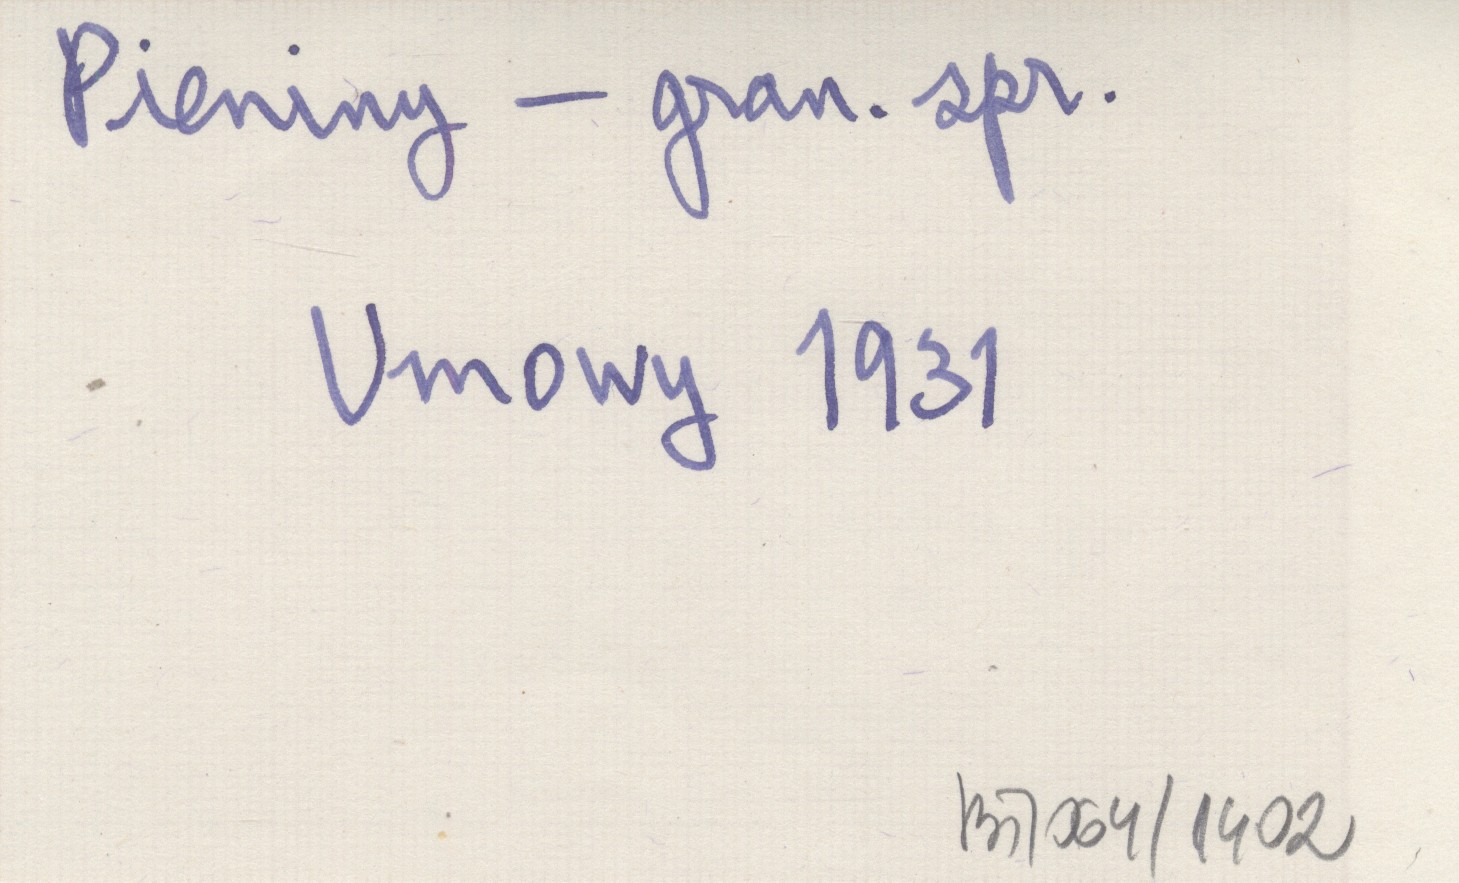 Pieniny – gran. spr.
Umowy 1931
/1402